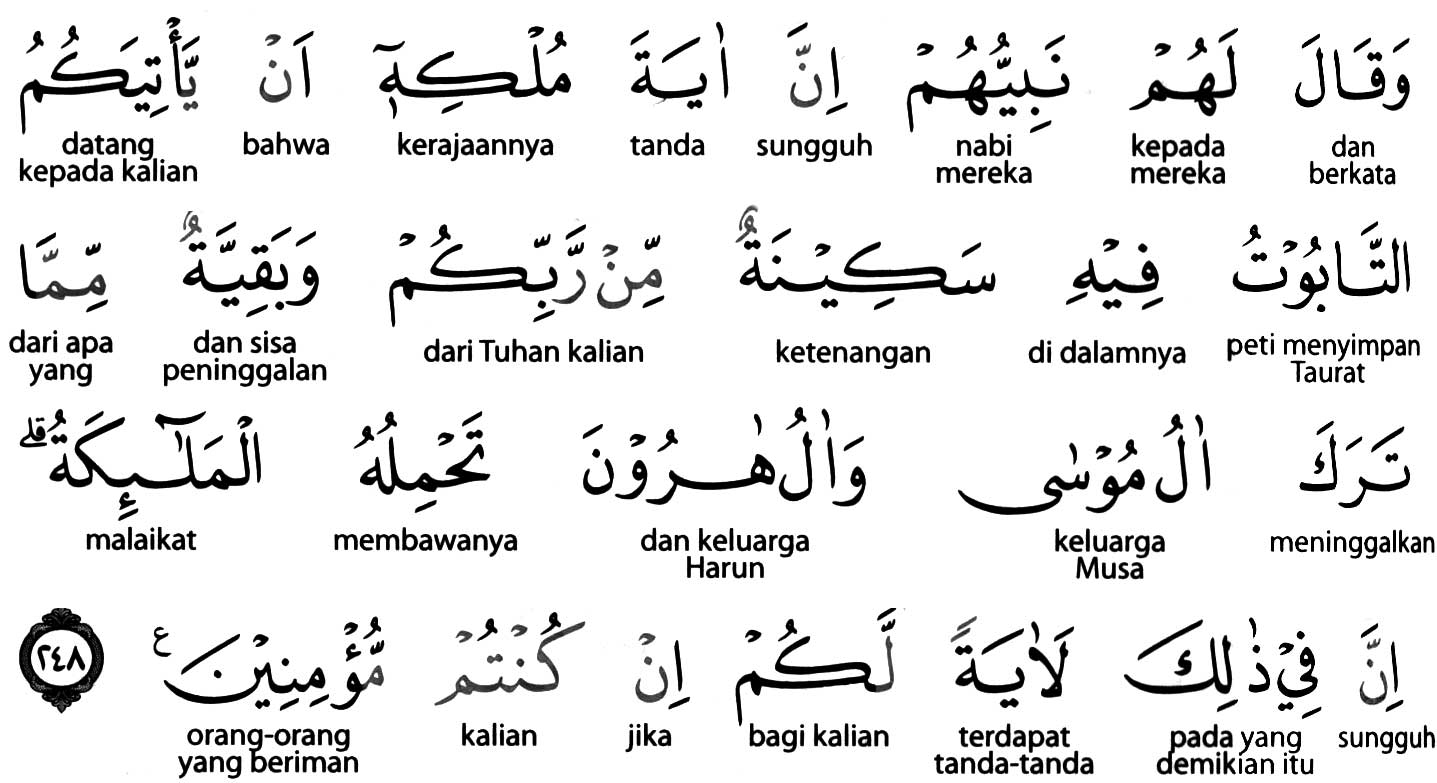 وَقَالَ لَهُمْ نَبِيُّهُمْ اِنَّ اٰيَةَ مُلْكِهٖٓ اَنْ يَّأْتِيَكُمُ
dan berkata kepada mereka nabi mereka sungguh tanda kerajaannya bahwa datang kepada kalian
التَّابُوْتُ فِيْهِ سَكِيْنَةٌ مِّنْ رَّبِّكُمْ وَبَقِيَّةٌ مِّمَّا
peti menyimpan Taurat di dalamnya ketenangan dari Tuhan kalian dan sisa peninggalan dari apa yang
تَرَكَ اٰلُ مُوْسٰى وَاٰلُ هٰرُوْنَ تَحْمِلُهُ الْمَلٰۤىِٕكَةُ ۗ
meninggalkan keluarga Musa dan keluarga Harun membawanya malaikat
اِنَّ فِيْ ذٰلِكَ لَاٰيَةً لَّكُمْ اِنْ كُنْتُمْ مُّؤْمِنِيْنَ ع ٢٤٨
sungguh pada yang demikian itu terdapat tanda-tanda bagi kalian jika kalian orang-orang yang beriman